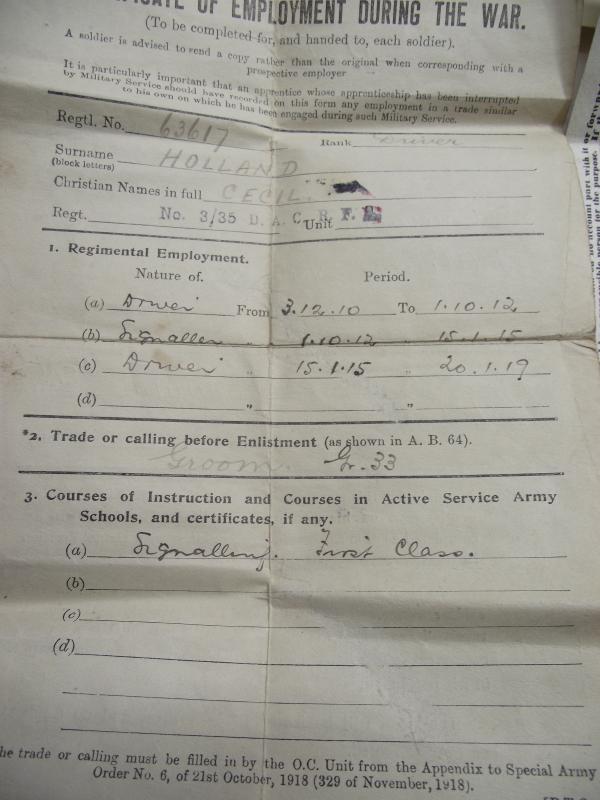 OF EMPLOYMENT DURING THE WAR.
(To be completed for, and handed to, each soldier).
A soldier is advised to send a copy rather than the original when corresponding with a
prospective employer
It is particularly important that an apprentice whose apprenticeship has been interrupted
by Military Service should have recorded on this form any employment in a trade similar
to his own on which he has been engaged during such Military Service.
Regtl. No. 63617 Rank Driver
Surname HOLLAND
(block letters)
Christian Names in full CECIL.
Regt. No. 3/35 D. A. C. R. F. A. Unit
1. Regimental Employment.
Nature of. Period.
(a) Driver From 3.12.10 To 1.10.12
(b) Signaller " 1.10.12 " 15.1.15
(c) Driver " 15.1.15 " 20.1.19
(d) " "
*2. Trade or calling before Enlistment (as shown in A. B. 64).
Groom. Gr. 33
3. Courses of Instruction and Courses in Active Service Army
Schools, and certificates, if any.
(a) Signalling. First Class.
(b)
(c)
(d)
he trade or calling must be filled in by the O.C. Unit from the Appendix to Special Army
Order No. 6, of 21st October, 1918 (329 of November, 1918).